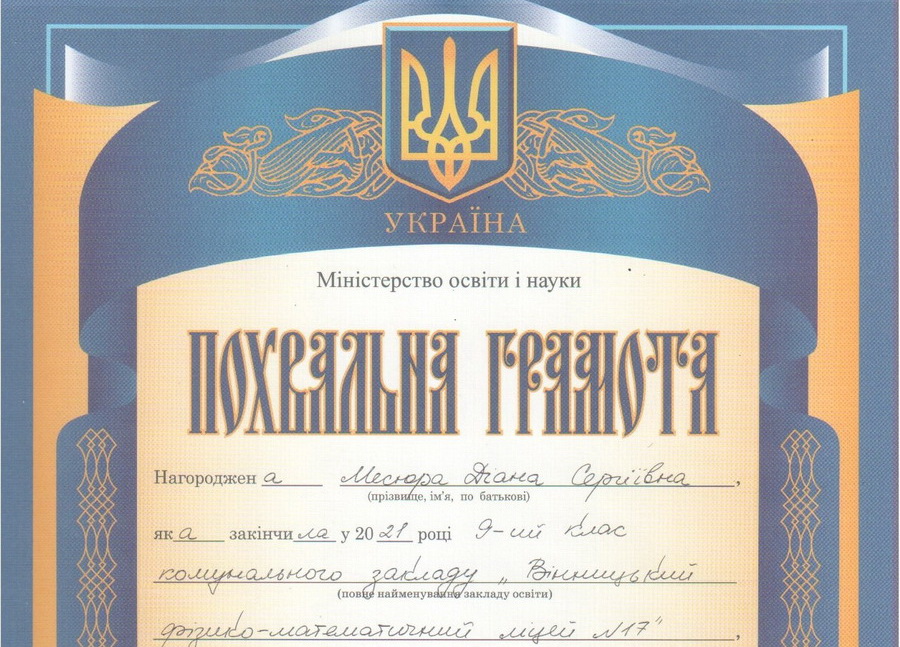 УКРАЇНА
Міністерство освіти і науки
ПОХВАЛЬНА ГРАМОТА
Нагороджен а Месюра Діана Сергіївна,
(прізвище, ім’я, по батькові)
як а закінчи ла у 20 21 році 9-ий клас
комунального закладу „ Вінницький
(повне найменування закладу освіти)
фізико-математичний ліцей №17",